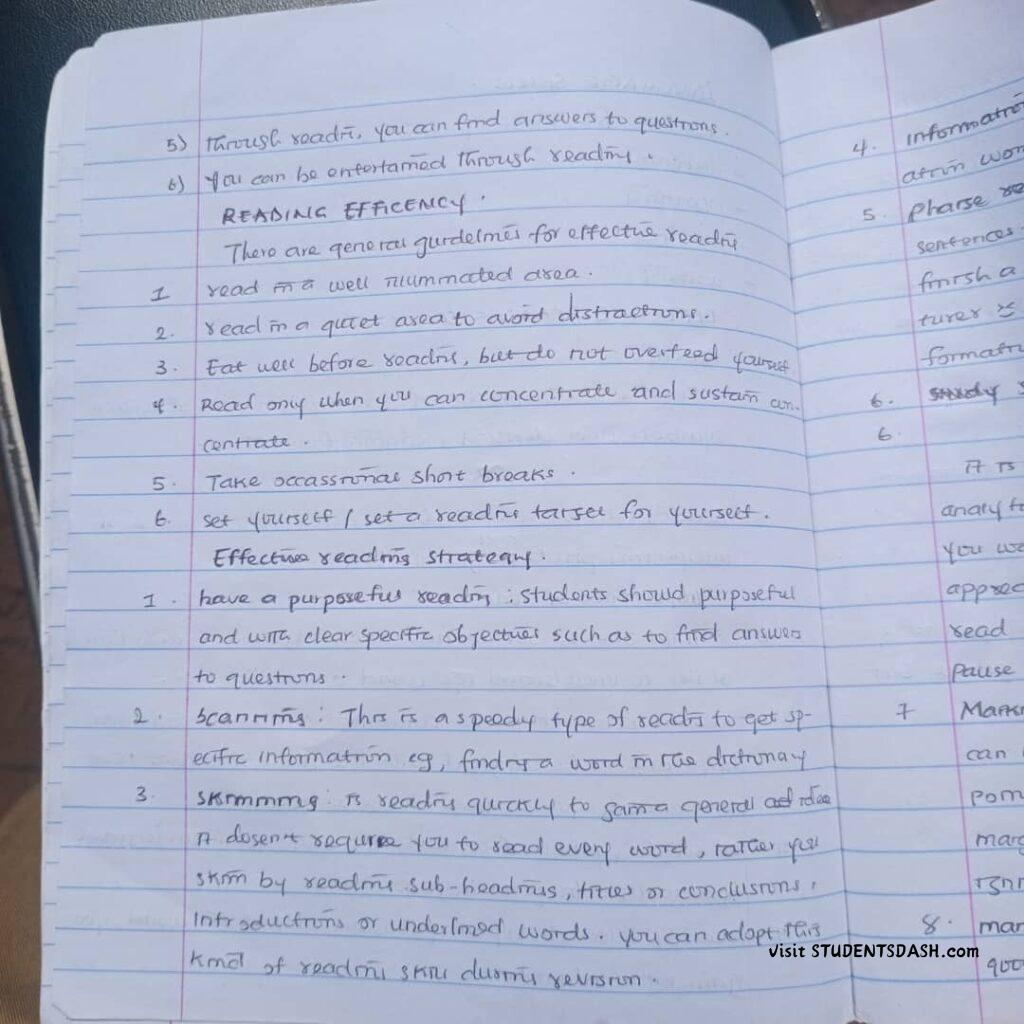 5) through reading, you can find answers to questions.
6) You can be entertained through reading.
READING EFFICENCY.
There are general guidelines for effective reading
1 read in a well illuminated area.
2. read in a quiet area to avoid distractions.
3. Eat well before reading, but do not overfeed yourself
4. Read only when you can concentrate and sustain con-
centrate.
5. Take occassional short breaks.
6. set yourself / set a reading target for yourself.
Effective reading strategy.
1. have a purposeful reading: students should purposeful
and with clear specific objectives such as to find answers
to questions.
2. Scanning: This is a speedy type of reading to get sp-
ecific information eg, finding a word in the dictionary
3. skimming: is reading quickly to gain a general idea
it dosen't require you to read every word, rather you
skim by reading sub-headings, titles or conclusions,
introductions or underlined words. you can adopt this
kind of reading skill during revision.
4. information
ation wor
5. Pharse re
sentences.
finish a
turer is
formati
6. study
6.
It is
analy to
you wo
apprec
read
Pause
7 Markin
can
Poin
marg
8. mar
goo
visit STUDENTSDASH.com